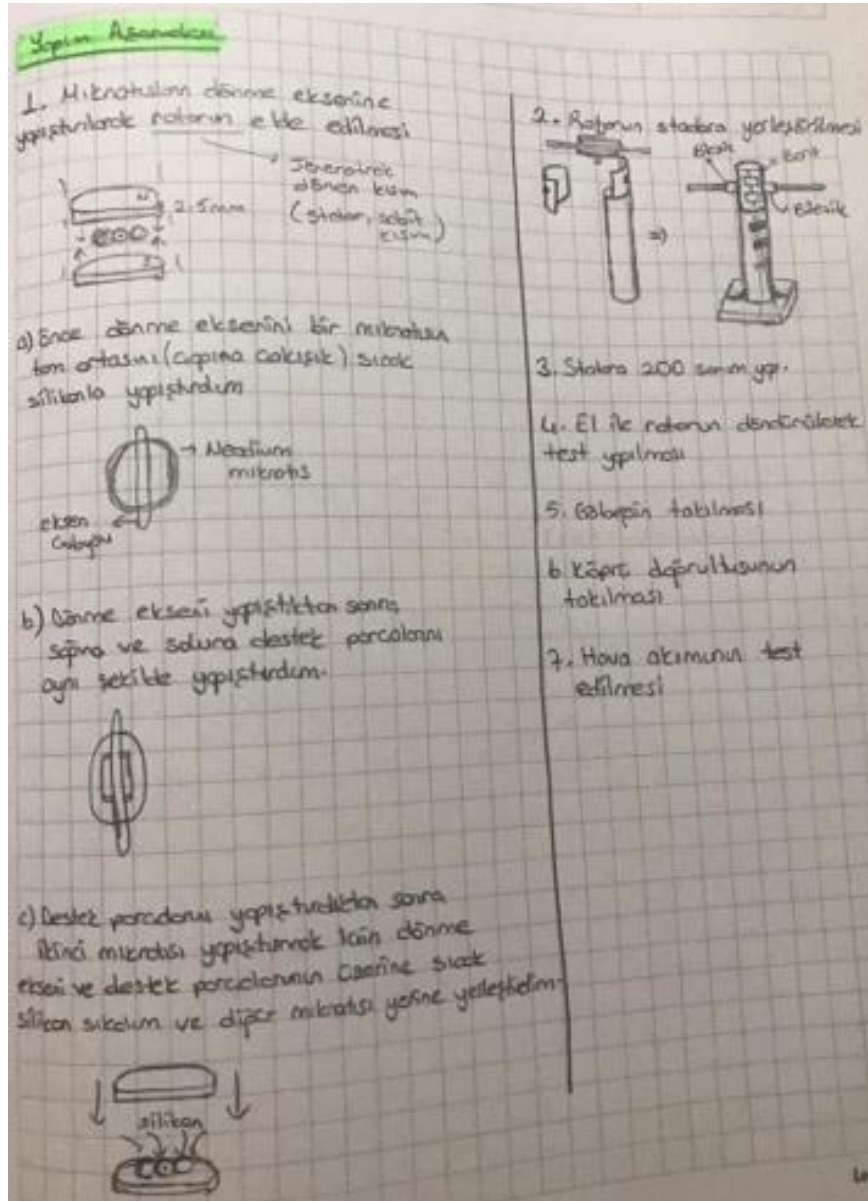 Yapım Aşamaları
1. Mıknatısların dönme eksenine
yapıştırılarak rotorun elde edilmesi
Jeneratörek
dönen kısım
(stator, sabit
kısım)
2.5mm
a) Önce dönme eksenini bir mıknatısın
tam ortasını (çapına çakışık) sıcak
silikonla yapıştırdım
Neodium
mıknatıs
eksen
b) Dönme ekseni yapıştıktan sonra
sağına ve soluna destek parçalarını
aynı şekilde yapıştırdım.
c) Destek parçalarını yapıştırdıktan sonra
ikinci mıknatısı yapıştırmak için dönme
ekseni ve destek parçalarının üzerine sıcak
silikon sıkdım ve diğer mıknatısı yerine yerleştirdim.
silikon
2. Rotorun statora yerleştirilmesi
Bant
Bilezik
3. Statora 200 sarım yap.
4. El ile rotorun döndürülerek
test yapılması
5. Göbeğin takılması
6. Köprü doğrultusunun
takılması
7. Hava akımının test
edilmesi